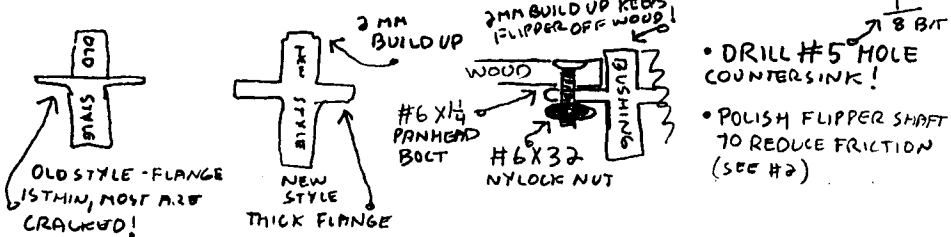 OLD
STYLE
OLD STYLE - FLANGE
IS THIN, MOST ARE
CRACKED!
NEW
STYLE
2 MM
BUILD UP
NEW
STYLE
THICK FLANGE
2MM BUILD UP KEEPS
FLIPPER OFF WOOD!
WOOD
BUSHING
#6 X 1 1/4
PANHEAD
BOLT
#6 X 32
NYLOCK NUT
1/8 BIT
• DRILL #5 HOLE
COUNTERSINK!
• POLISH FLIPPER SHAFT
TO REDUCE FRICTION
(SEE #2)